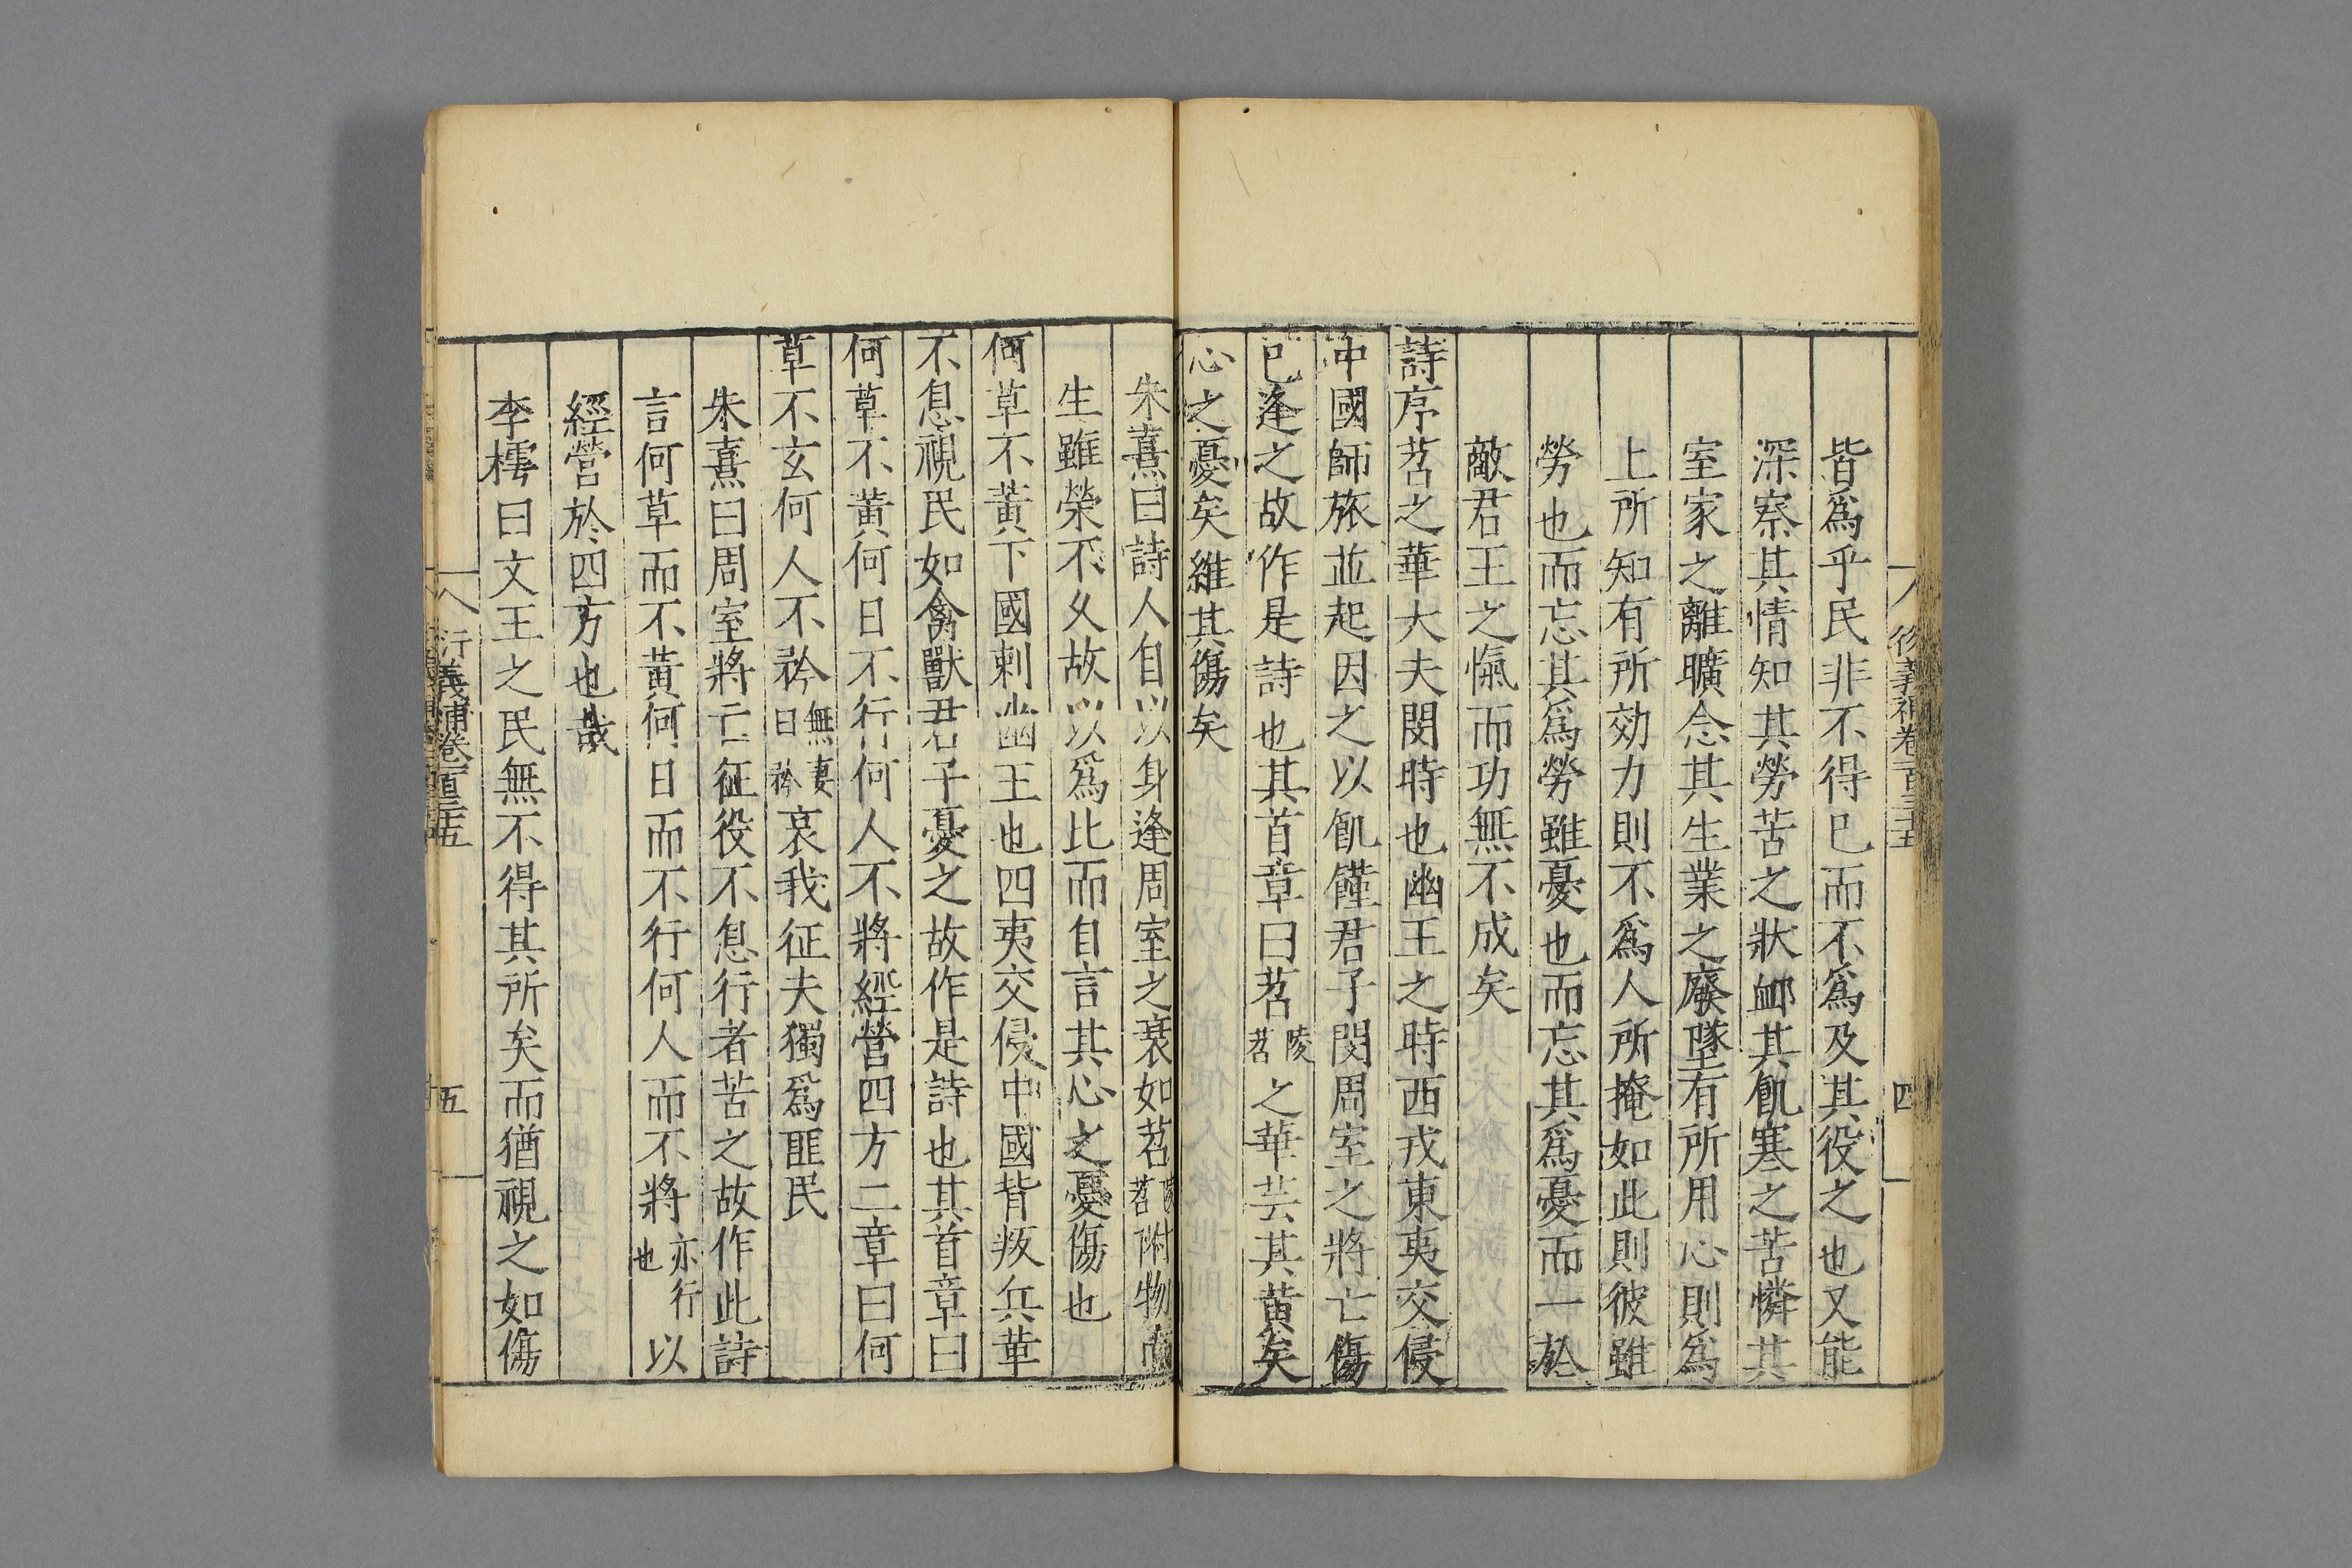 衍義補卷一百三十五 四
皆爲乎民非不得已而不爲及其役之也又能
深察其情知其勞苦之狀䘏其飢寒之苦憐其
室家之離曠念其生業之廢墜有所用心則爲
上所知有所効力則不爲人所掩如此則彼雖
勞也而忘其爲勞雖憂也而忘其爲憂而一於
敵君王之愾而功無不成矣
詩序苕之華大夫閔時也幽王之時西戎東夷交侵
中國師旅並起因之以飢饉君子閔周室之將亡傷
已逢之故作是詩也其首章曰苕陵苕之華芸其黄矣
心之憂矣維其傷矣
朱熹曰詩人自以身逢周室之衰如苕陵苕附物而
生雖榮不久故以爲比而自言其心之憂傷也
何草不黃下國刺幽王也四夷交侵中國背叛兵革
不息視民如禽獸君子憂之故作是詩也其首章曰
何草不黃何日不行何人不將經營四方二章曰何
草不玄何人不矜無妻曰矜哀我征夫獨爲匪民
朱熹曰周室將亡征役不息行者苦之故作此詩
言何草而不黃何日而不行何人而不將亦行也以
經營於四方也哉
李樗曰文王之民無不得其所矣而猶視之如傷
衍義補卷一百三十五 五